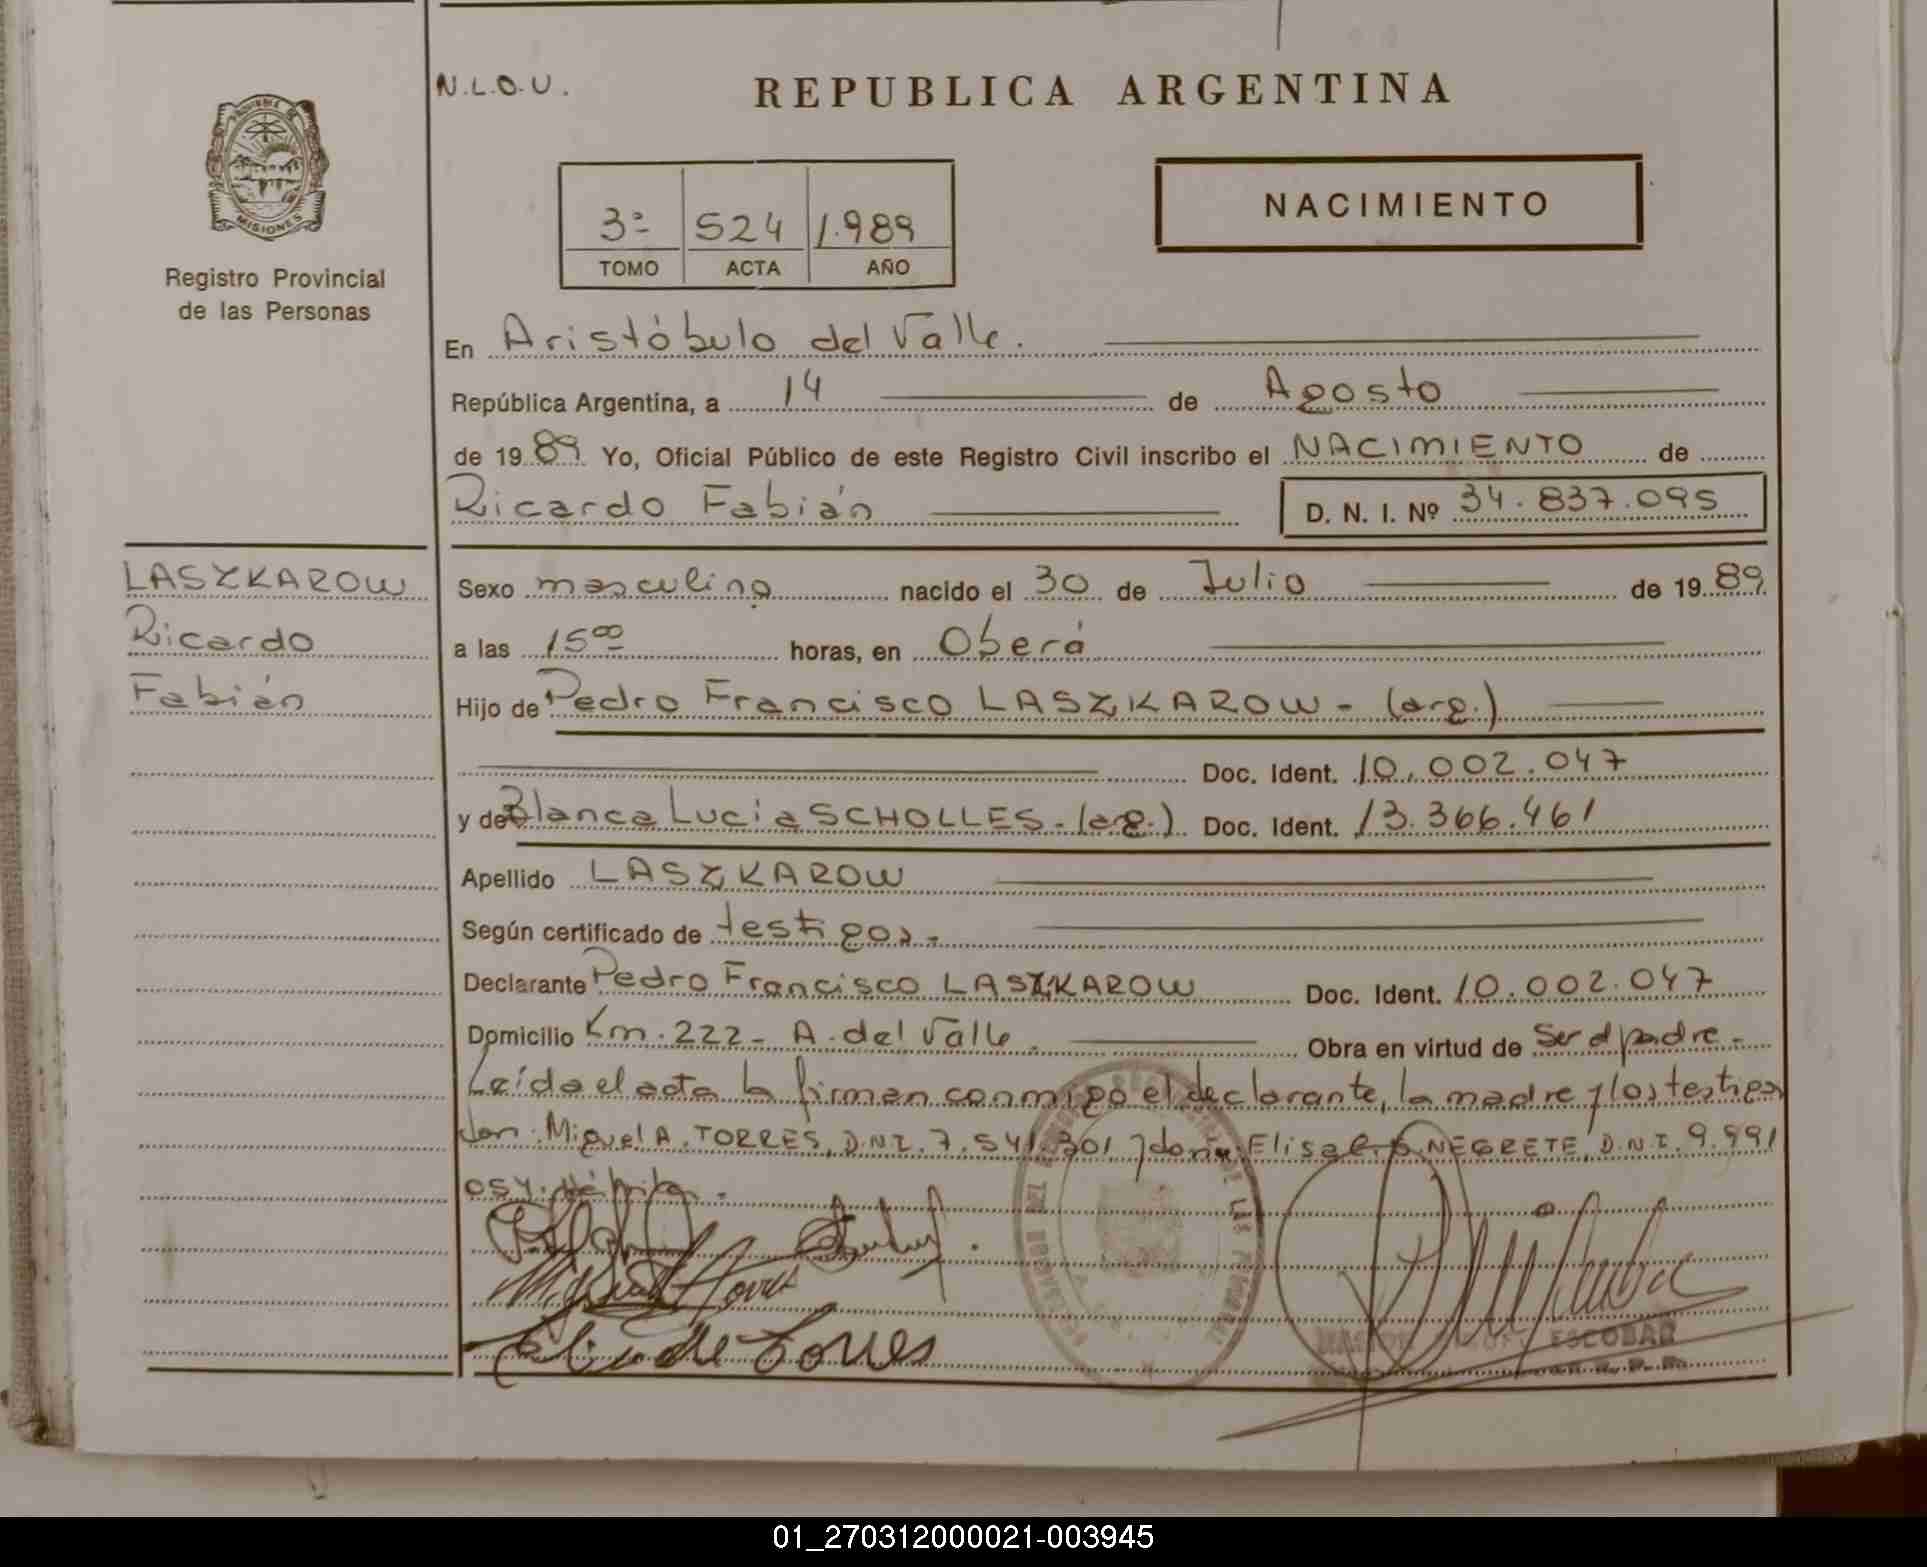 N.L.O.U.
REPUBLICA ARGENTINA
PROVINCIA DE
MISIONES
Registro Provincial
de las Personas
NACIMIENTO
3º 524 1.989
TOMO ACTA AÑO
En Aristóbulo del Valle.
República Argentina, a 14 de Agosto
de 1989 Yo, Oficial Público de este Registro Civil inscribo el NACIMIENTO de
Ricardo Fabián D. N. I. Nº 34.837.095
LASZKAROW
Ricardo
Fabián
Sexo masculino nacido el 30 de Julio de 1989
a las 15⁰⁰ horas, en Oberá
Hijo de Pedro Francisco LASZKAROW - (arg.)
Doc. Ident. 10.002.047
y de Blanca Lucía SCHOLLES - (arg.) Doc. Ident. 13.366.461
Apellido LASZKAROW
Según certificado de testigos.-
Declarante Pedro Francisco LASZKAROW Doc. Ident. 10.002.047
Domicilio Km. 222 - A. del Valle. Obra en virtud de ser el padre.-
Leída el acta la firman conmigo el declarante, la madre y los testigos
don: Miguel A. TORRES, D.N.I. 7.541.301 y doña: Elisa NEGRETE, D.N.I. 9.991
Miguel A Torres
de Torres
ESCOBAR
01_270312000021-003945